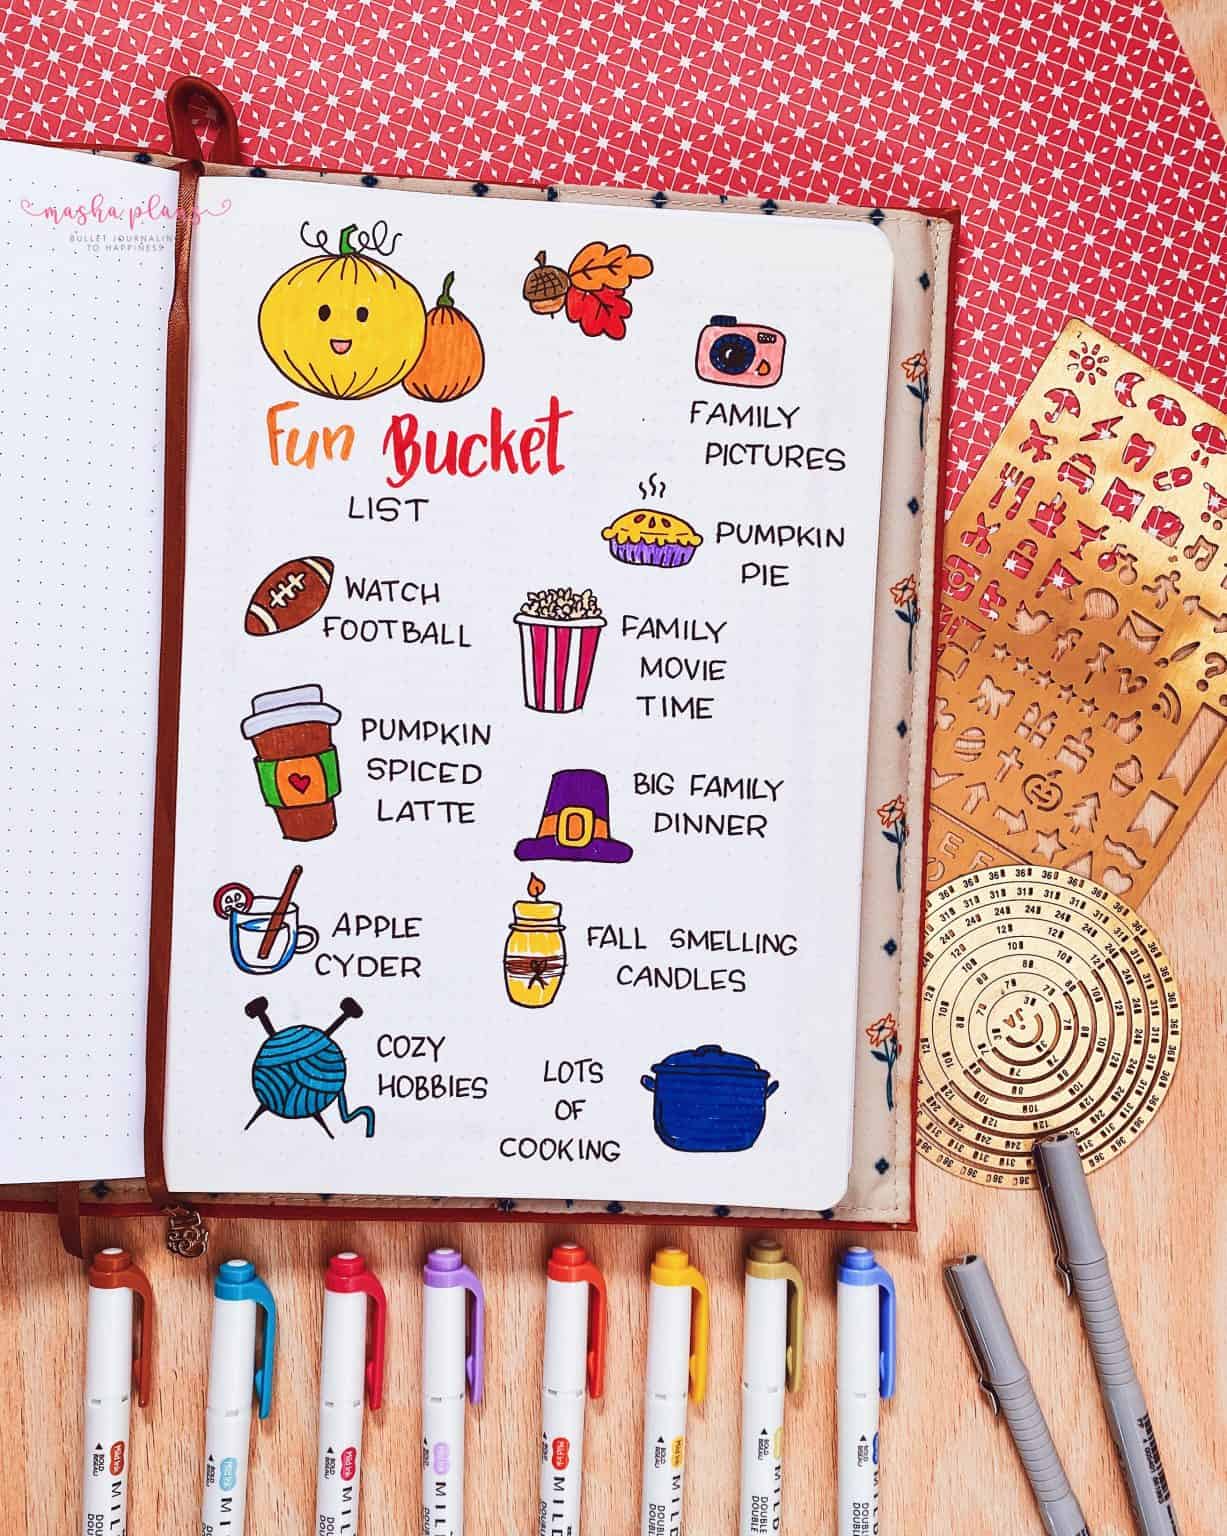 masha plans
BULLET JOURNALING
TO HAPPINESS
Fun Bucket
LIST
WATCH
FOOTBALL
PUMPKIN
SPICED
LATTE
APPLE
CYDER
COZY
HOBBIES
FAMILY
PICTURES
PUMPKIN
PIE
FAMILY
MOVIE
TIME
BIG FAMILY
DINNER
FALL SMELLING
CANDLES
LOTS
OF
COOKING